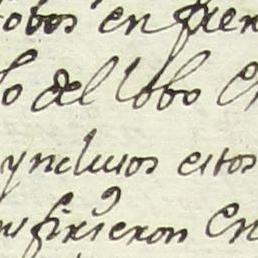 lobos en
lo del lobo en
ynclusos estos
firieron en